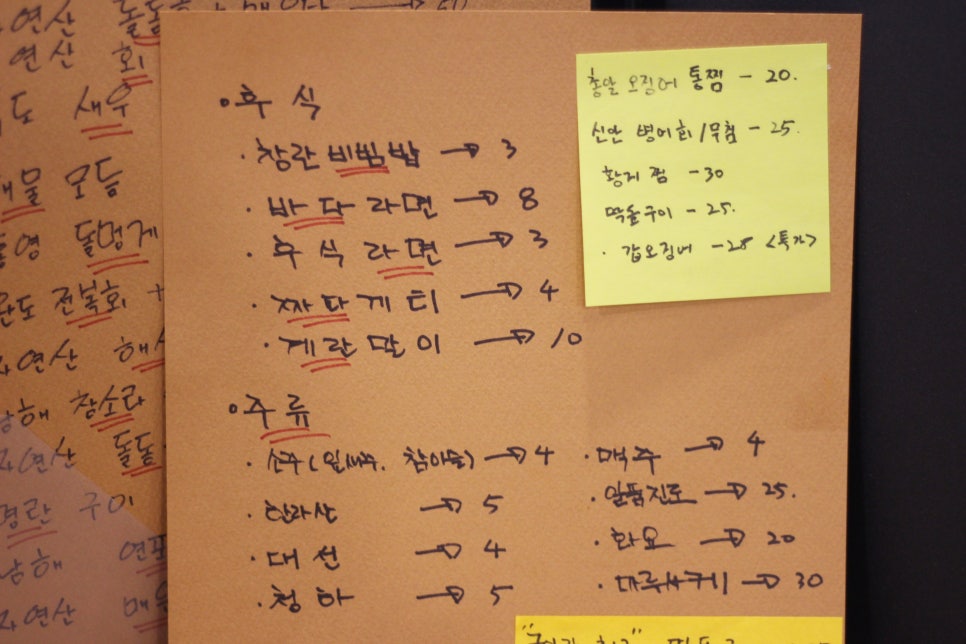 자연산
연산 회
도 새우
해물 모듬
통영 돌멍게
완도 전복회 +
자연산
남해 참소라
자연산
명란 구이
남해
자연산
• 후 식
· 창란 비빔밥 → 3
· 바다라면 → 8
· 후식라면 → 3
· 짜다게티 → 4
· 계란말이 → 10
• 주류
· 소주( 참이슬) → 4
· 한라산 → 5
· 대선 → 4
· 청하 → 5
· 맥주 → 4
· 일품진로 → 25.
· 화요 → 20
· → 30
총알 오징어 통찜 - 20.
신안 병어회/무침 - 25.
황게 찜 - 30
- 25.
· 갑오징어 - 28 <특가>